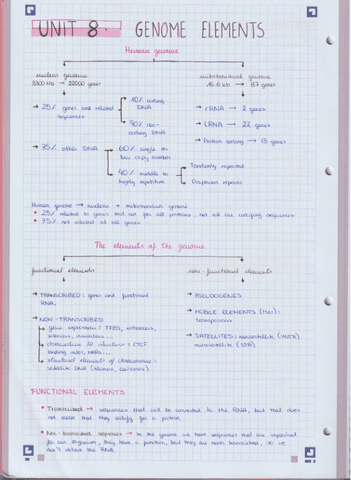 UNIT 8. GENOME ELEMENTS
Human genome
nuclear genome
mitochondrial genome
3300 Mb → 22000 genes
16.6 kb → 37 genes
→ 25% genes and related sequences
10% coding DNA
90% non-coding DNA
→ rRNA → 2 genes
→ tRNA → 22 genes
→ Protein coding → 13 genes
→ 75% other DNA
60% single or low copy number
40% middle to highly repetitive
Tandemly repeated
Dispersed repeats
Human genome → nuclear + mitochondrial genome
• 25% related to genes but not for all proteins, not all are codifying sequences
• 75% not related at all genes
The elements of the genome
functional elements
non-functional elements
→ TRANSCRIBED: genes and functional RNA.
→ PSEUDOGENES
→ MOBILE ELEMENTS (MEI): transposons
→ NON-TRANSCRIBED
→ gene expression: TFBS, enhancers, silencers, insulators...
→ chromosome 3D structure: CTCF binding sites, MARS...
→ structural elements of chromosome: satellite DNA (telomere, centromere)
→ SATELLITES: minisatellite (VNTR) microsatellite (STR)
FUNCTIONAL ELEMENTS
• Transcribed → sequences that will be converted to the RNA, but that does
not mean that they codify for a protein.
• Non-transcribed sequences → In the genome we have sequences that are important
for our organism, they have a function, but they are never transcribed, so we
don't obtain the RNA.